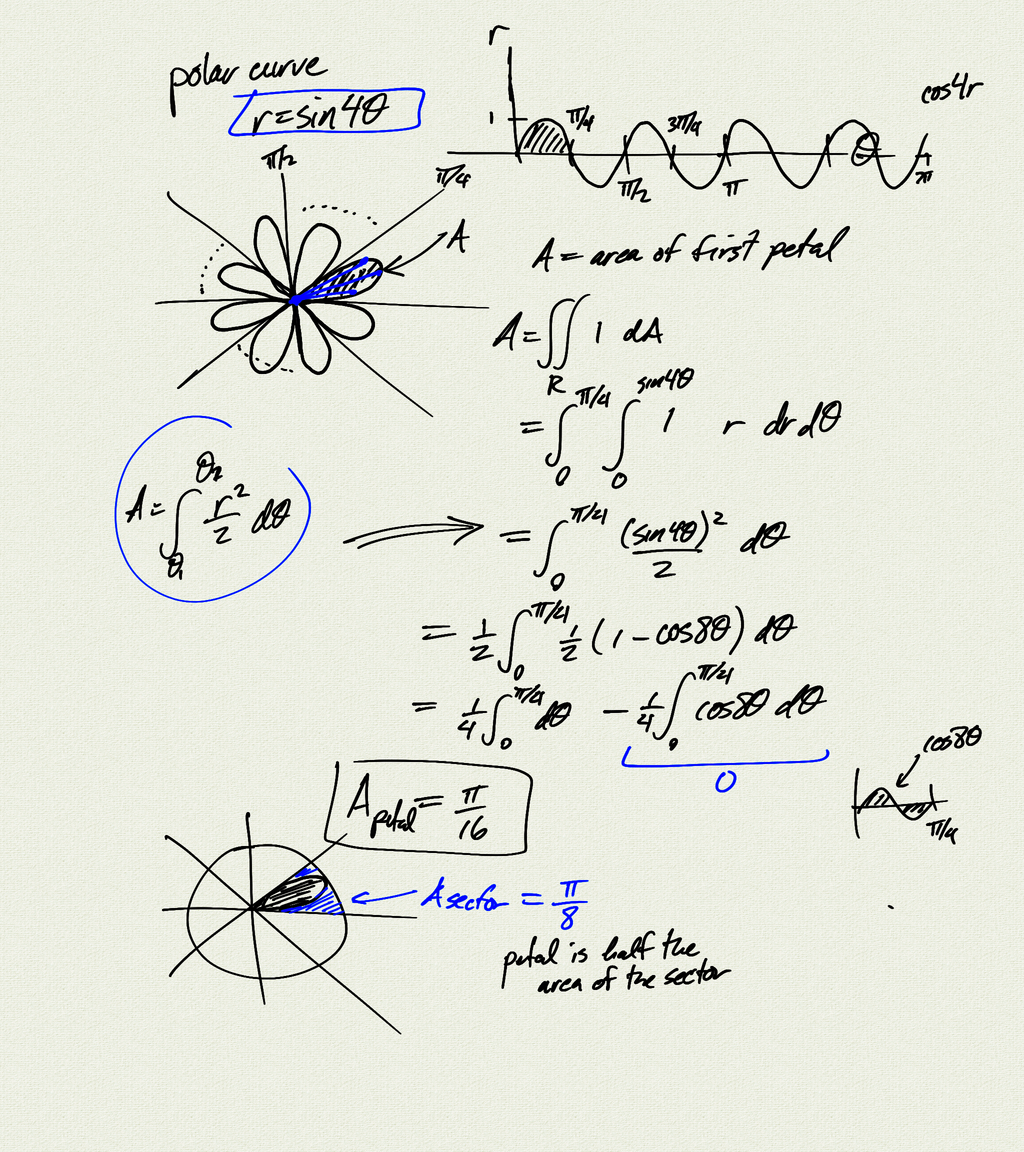 polar curve
r=sin4θ
r
1
π/4
3π/4
π/2
π
θ
2π
cos4r
π/2
π/4
A
A = area of first petal
A = ∬_R 1 dA
= ∫_0^{π/4} ∫_0^{sin4θ} 1 r dr dθ
A = ∫_{θ₁}^{θ₂} r²/2 dθ
= ∫_0^{π/4} (sin4θ)²/2 dθ
= 1/2 ∫_0^{π/4} 1/2 (1 - cos8θ) dθ
= 1/4 ∫_0^{π/4} dθ - 1/4 ∫_0^{π/4} cos8θ dθ
0
cos8θ
π/4
A petal = π/16
A sector = π/8
petal is half the
area of the sector